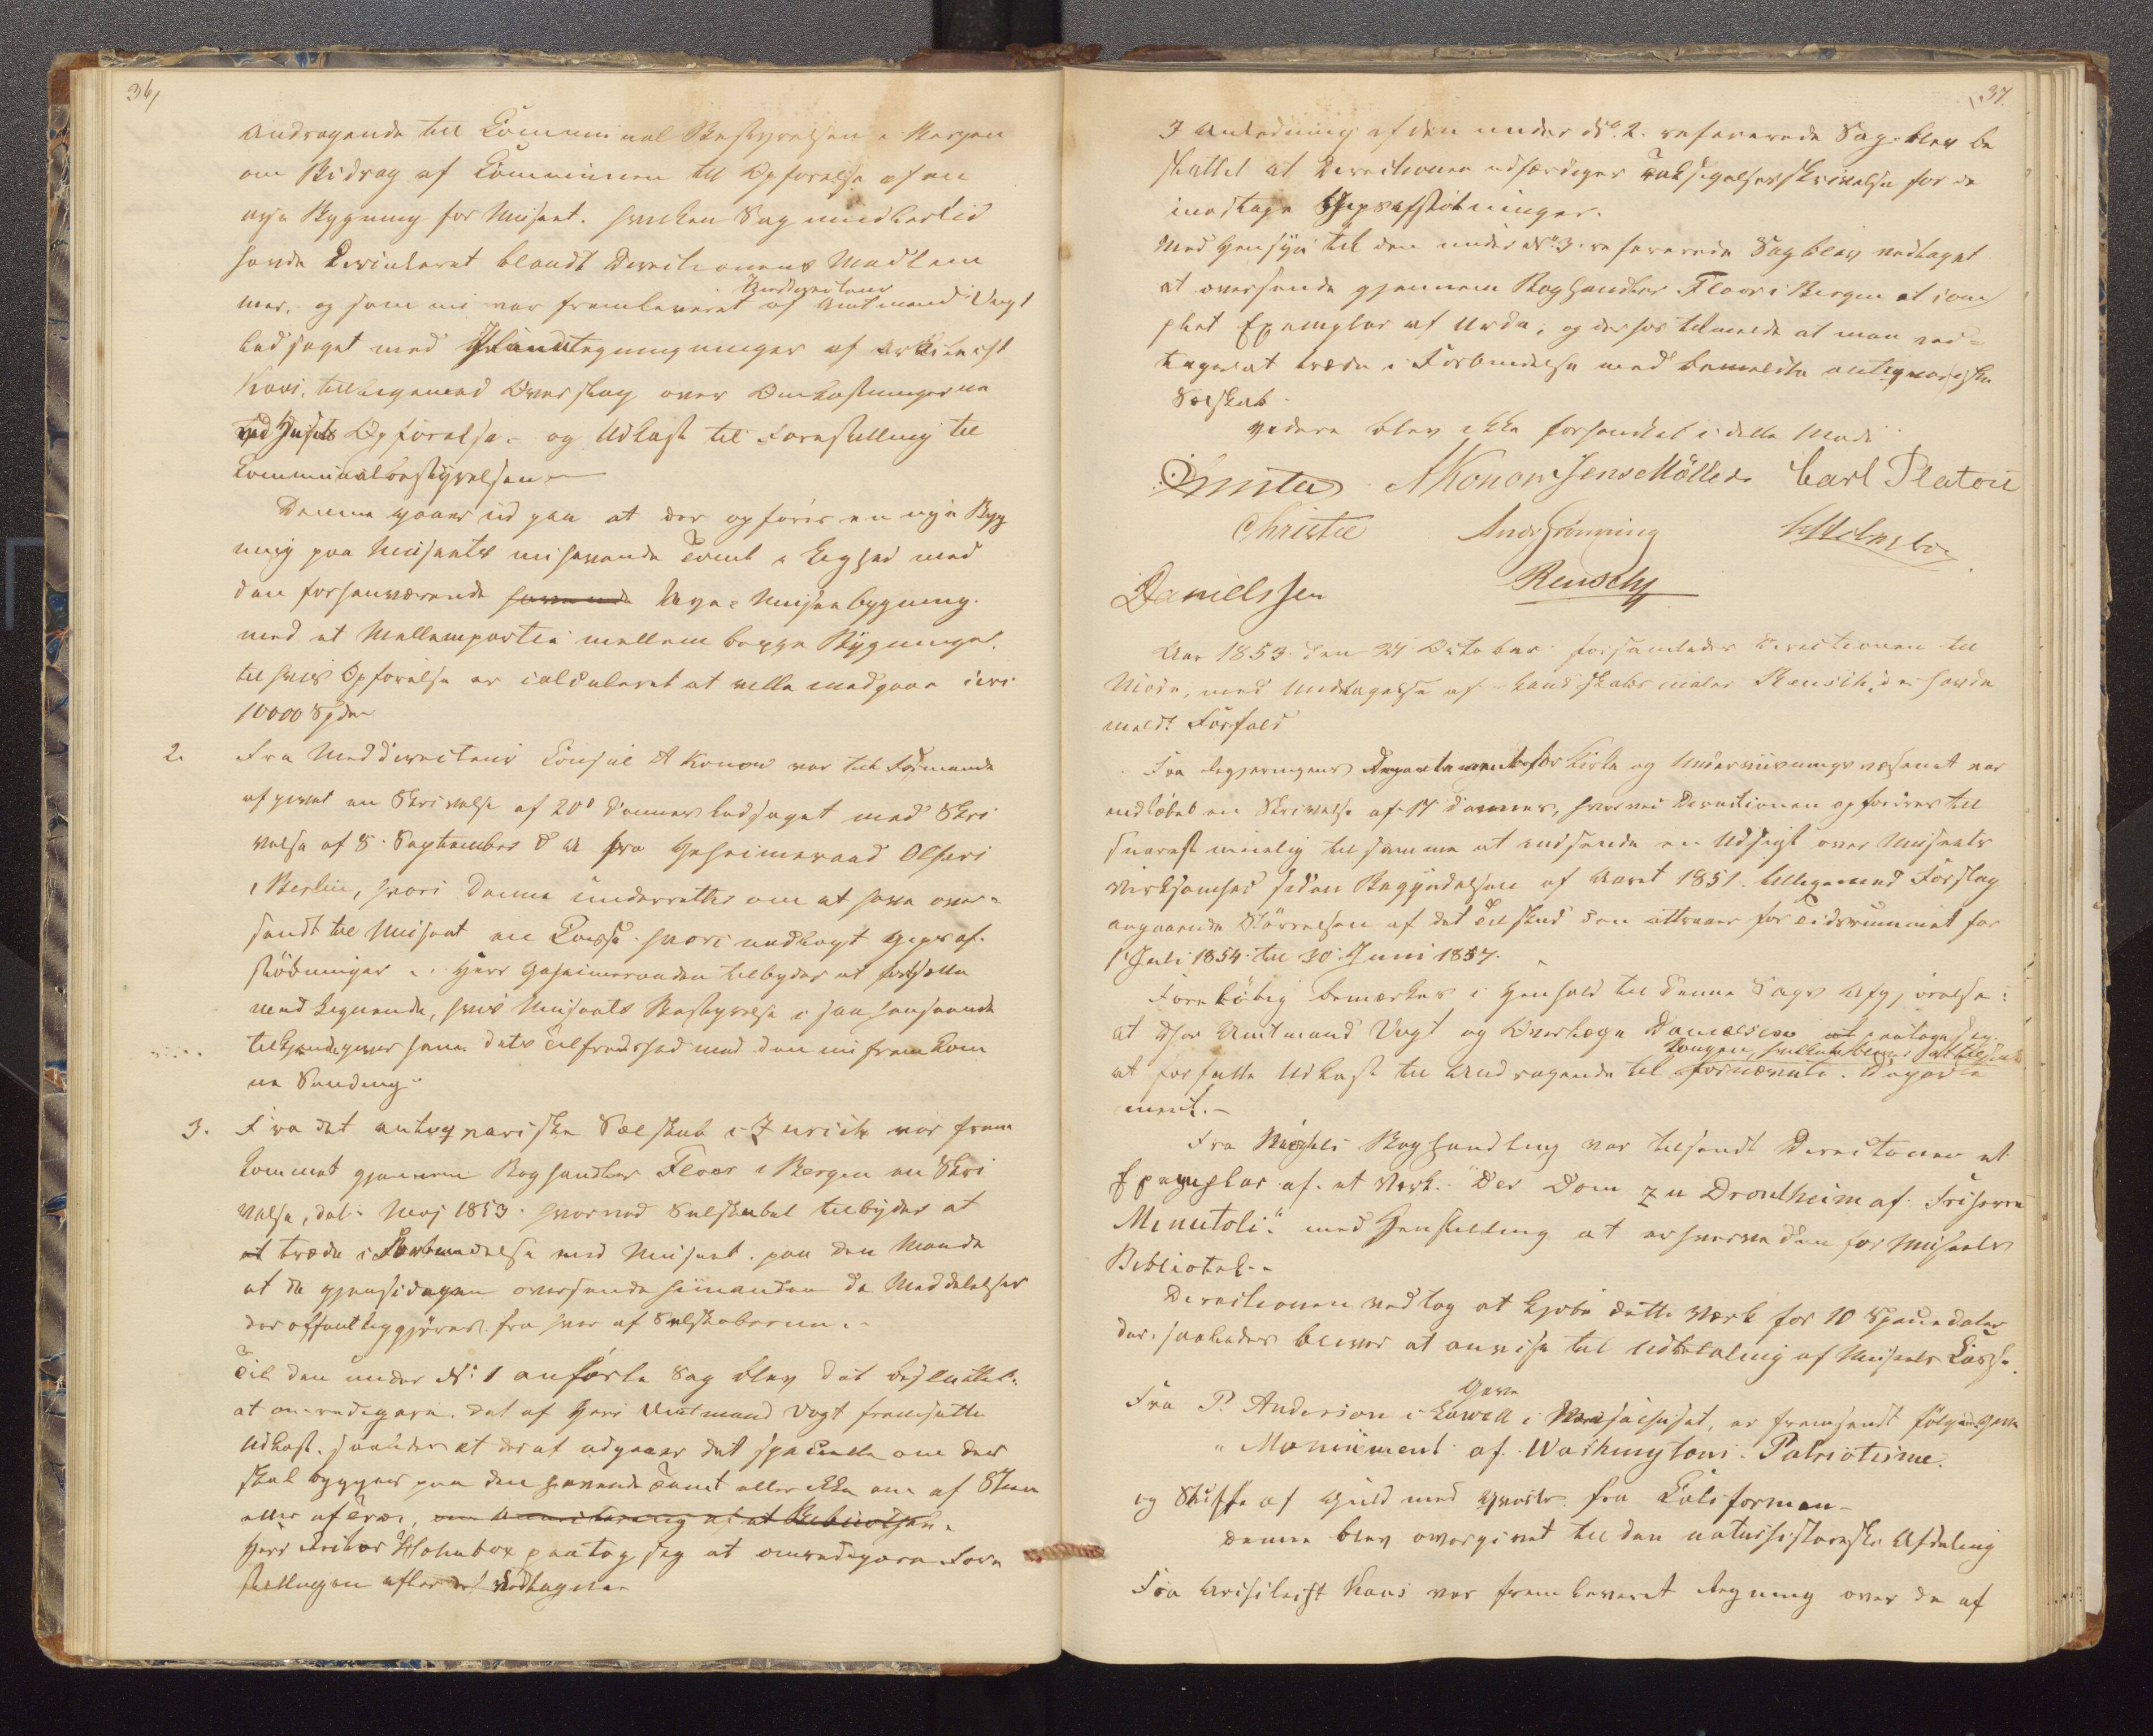 36/
Andragende til Communal Bestyrelsen i Bergen
om Bidrag af Communen til Opførelse af en
nye Bygning for Museet. hvilken Sag imidlertid
havde Circuleret blandt Directionens Medlem
mer, og som nu var fremleveret af Meddirecteur Amtmand Vogt
ledsaget med Haandtegninger af Arkitecht
Kaas, tilligemed Overslag over Omkostningerne
ved Husets Opførelse. og Udkast til Forestilling til
Communalbestyrelsen
Denne gaaer ud paa at der opføres en nye Byg
ning paa Museets nuhavende Tomt i Lighed med
den forhenværende havende nye Museebygning.
med et Mellemportie mellem begge Bygninger.
til hvis Opførelse er calculeret at ville medgaae circ
10000 Spdr
2. Fra Meddirecteur Consul A Konow var til Formanden
afgivet en Skrivelse af 20de dennes ledsaget med Skri
velse af 8. September d A fra Geheimeraad Olfers
i Berlin, hvori denne underretter om at have over-
sendt til Museet en Casse hvori nedlagt Gips af-
støbninger. Herr Geheimeraaden tilbyder at fortsætte
med lignende, hvis Museets Bestyrelse i saa henseende
tilkjendegiver ham dets Tilfredshed med den nu frem kom
ne Sending.
3. Fra det antiqvariske Selskab i Zurich var frem
kommet gjennem Boghandler Floor i Bergen en Skri
velse, dat: Maj 1853. hvorved Selskabet tilbyder at
at træde i Forbindelse med Museet. paa den Maade
at de gjensidigen oversende hinanden de Meddelelser
der offentliggjøres fra hver af Selskaberne.
Til den under No: 1 anførte Sag blev det besluttet:
at omredigere det af Herr Amtmand Vogt fremsatte
Udkast. saaledes at deraf udgaaer det specielle om der
skal bygges paa den havende Tomt eller ikke om af Steen
eller af Træ, om af et Bibliothek.
Herr Holmboe paatog sig at omredigere Fore
stillingen efter det Vedtagne
37.
I Anledning af den under No. 2. refererede Sag blev be
sluttet at Directionen udfærdiger Taksigelsesskrivelse for de
modtagne Gipsafstøbninger.
Med Hensyn til den under No 3. refererede Sag blev vedtaget
at oversende gjennem Boghandler Floor i Bergen et com
plet Exemplar af Urda, og derhos tilmelde at man ved-
tager at træde i Forbindelse med bemeldte antiqvariske
Selskab.
videre blev ikke forhandlet i dette Møde
A Konow Jens Möller Carl Platou
Christie And Grønning Holmboe
Danielssen Reusch
Aar 1853. den 27 October forsamledes Directionen til
Møde, med Undtagelse af Landskabsmaler Reusch, der havde
meldt Forfald
Fra Regjeringens Departement for Kirke og Underviisningsvæsenet var
indløbet en Skrivelse af 17 dennes, hvorved Directionen opfordres til
snarest muelig til samme at indsende en Udsigt over Museets
Virksomhed siden Begyndelsen af Aaret 1851. tilligemed Forslag
angaaende Størrelsen af det Tilskud den attraaer for Tidsrummet fra
1 Juli 1854. til 30. Juni 1857.
Foreløbig bemærkes i Henhold til denne Sags Afgjørelse:
at Herr Amtmand Vogt og Overlæge Danielssen paatoge sig
at forfatte Udkast til Andragende til Kongen, fornævnte Departe
ment.
Fra Boghandling var tilsendt Directionen et
Exemplar af et Værk. "Der Dom zu Drontheim af Friherre
Minutoli." med Henstilling at erhverve den for Museets
Bibliotek.
Directionen vedtog at kjøbe dette Værk for 10 Speciedaler
der saaledes bliver at anvise til Udbetaling af Museets Casse.
Fra P. Anderson i Lowell i er fremsendt følgende Gave
"Moniument af Washingtons Patriotisme.
og Stuffe af Guld med Qvarts fra Californien
denne blev overgivet til den naturhistoriske Afdeling
Fra Architecht Kaas var fremleveret Regning over de af